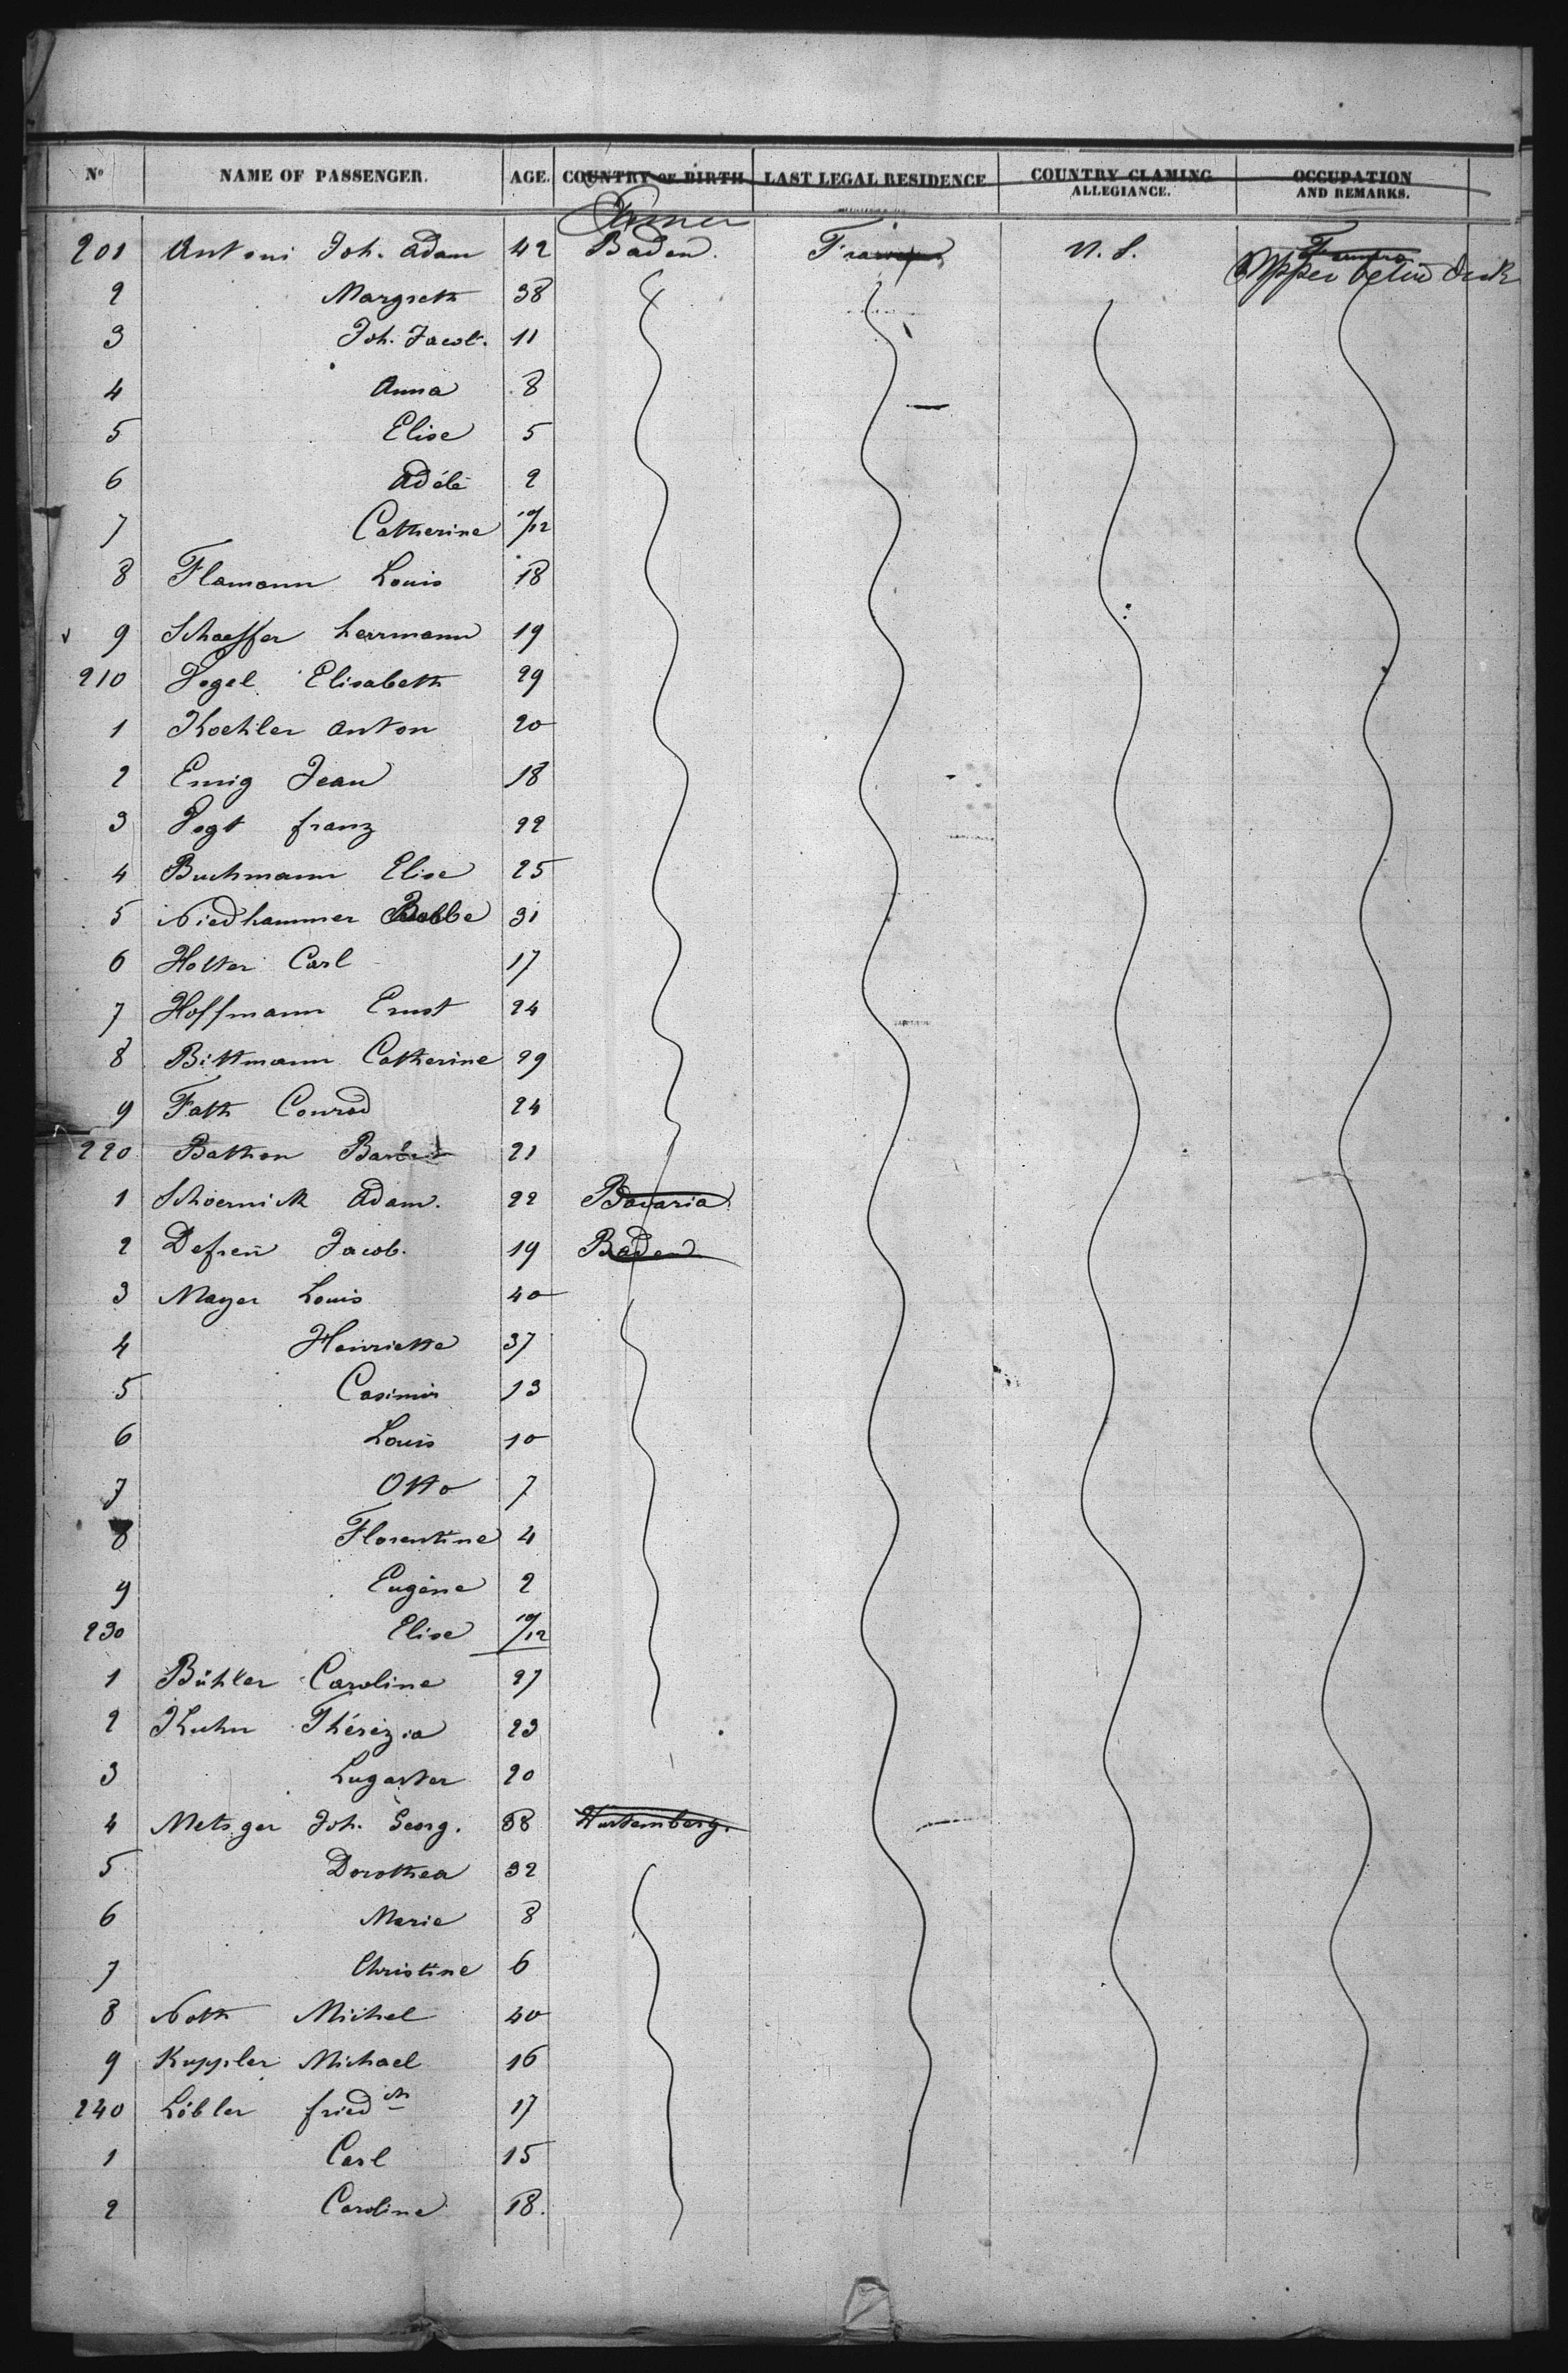 No NAME OF PASSENGER. AGE. COUNTRY OF BIRTH LAST LEGAL RESIDENCE COUNTRY CLAMING ALLEGIANCE. OCCUPATION AND REMARKS.
201 Antoni Joh. Adam 42 Baden. U. S. Upper betw deck
2 Margreth 38
3 Joh. Jacob. 11
4 Anna 8
5 Elise 5
6 Adéle 2
7 Catherine 10/12
8 Flamann Louis 18
9 Schaeffer herrmann 19
210 Vogel Elisabeth 29
1 Koehler Anton 20
2 Emig Jean 18
3 Vogt franz 22
4 Buchmann Elise 25
5 Niedhammer 31
6 Holter Carl 17
7 Hoffmann Ernst 24
8 Bittmann Catherine 29
9 Fath Conrad 24
220 Bathon 21
1 Schoernick Adam. 22 Bavaria
2 Jacob. 19 Baden
3 Mayer Louis 40
4 Henriette 37
5 Casimir 13
6 Louis 10
7 Otto 7
8 Florentine 4
9 Eugène 2
230 Elise 10/12
1 Bühler Caroline 27
2 Kuhn Thérézia 23
3 Lugarter 20
4 Metsger Joh. Georg. 38 Wurtemberg.
5 Dorothea 32
6 Marie 8
7 Christine 6
8 Noth Michel 40
9 Kuppler Michael 16
240 Löbler friedch 17
1 Carl 15
2 Caroline 18.